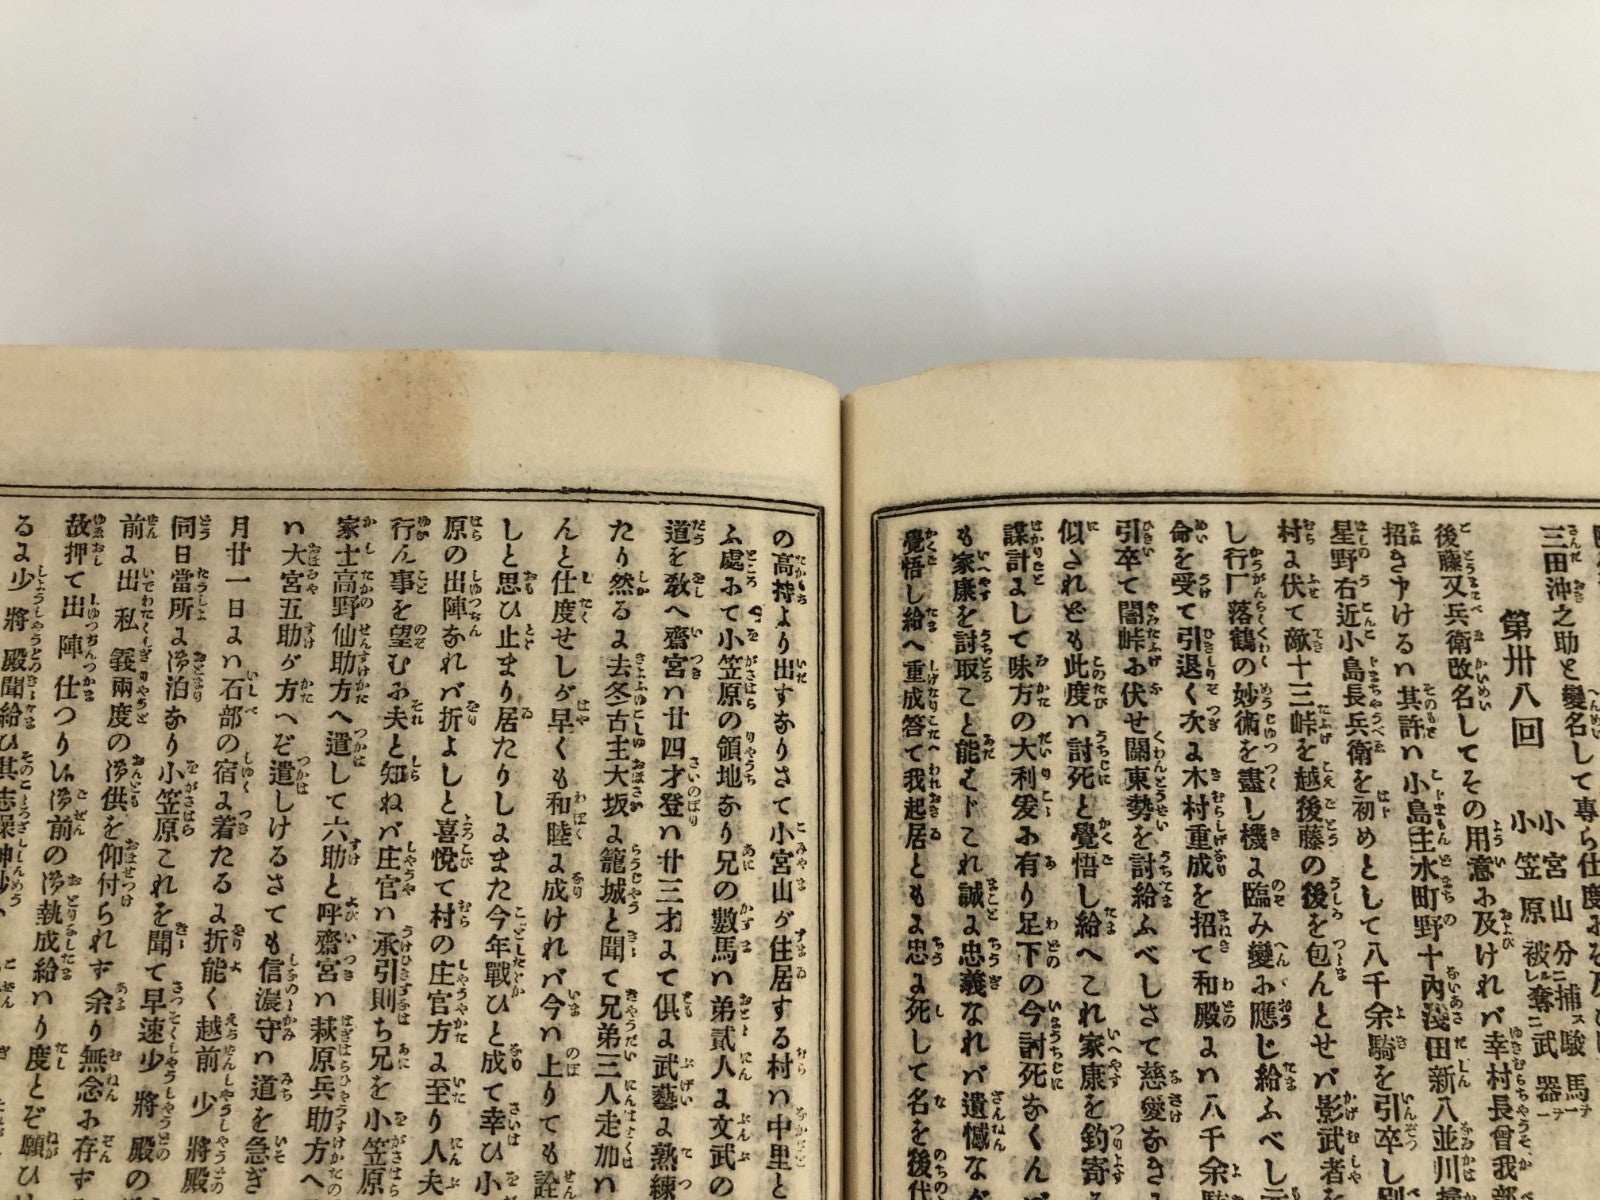 三田沖之助と變名して専ら仕度
第卅八回
小宮山分捕駿馬
小笠原被奪武器
後藤又兵衛改名してその用意に及けれバ幸村長曾我部
招き中けるハ其許ハ小島主水町野十内淺田新八並川
星野右近小島長兵衛を初めとして八千余騎を引卒し
村に伏て敵十三峠を越後藤の後を包んとせバ影武者を
し行厂落鶴の妙術を盡し機に臨み變に應じ給ふべし
命を受て引退く次に木村重成を招て和殿にハ八千余
引卒て闇峠に伏せ關東勢を討給ふべしさて慈愛なき
似されとも此度ハ討死と覺悟し給へこれ家康を釣寄
謀計にして味方の大利爰に有り足下の今討死なくんバ
も家康を討取こと能ハずこれ誠に忠義なれバ遺憾な
覺悟し給へ重成答て我起居ともに忠に死して名を後代
の高持より出すなりさて小宮山が住居する村ハ中里と
ふ處にて小笠原の領地なり兄の數馬ハ弟貳人に文武の
道を敎へ齋宮ハ廿四才登ハ廿三才にて倶に武藝に熟練
たり然るに去冬古主大坂に籠城と聞て兄弟三人走加ハ
んと仕度せしが早くも和睦に成けれバ今ハ上りても詮
しと思ひ止まり居たりしにまた今年戰ひと成て幸ひ小
原の出陣なれバ折よしと喜悅て村の庄官方に至り人夫
行ん事を望むに夫と知ねバ庄官ハ承引則ち兄を小笠原
家士高野仙助方へ遣して六助と呼齋宮ハ萩原兵助方へ
ハ大宮五助が方へぞ遣しけるさても信濃守ハ道を急ぎ
月廿一日にハ石部の宿に着たるに折能く越前少將殿
同日當所に御泊なり小笠原これを聞て早速少將殿の
前に出私義兩度の御供を仰付られず余り無念に存ず
故押て出陣仕つりし御前の御執成給ハり度とぞ願ひ
るに少將殿聞給ひ其志操神妙